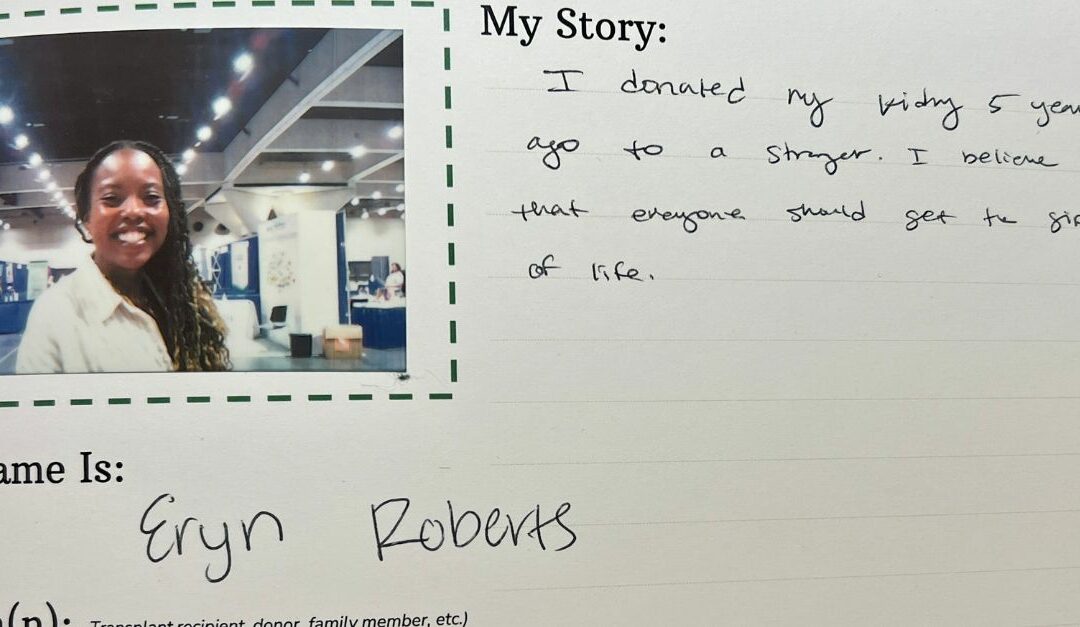 My Story:
I donated my kidny 5 year
ago to a stranger. I believe
that everyone should get the gif
of life.
ame Is:
Eryn Roberts
(n): Transplant recipient, donor, family member, etc.)